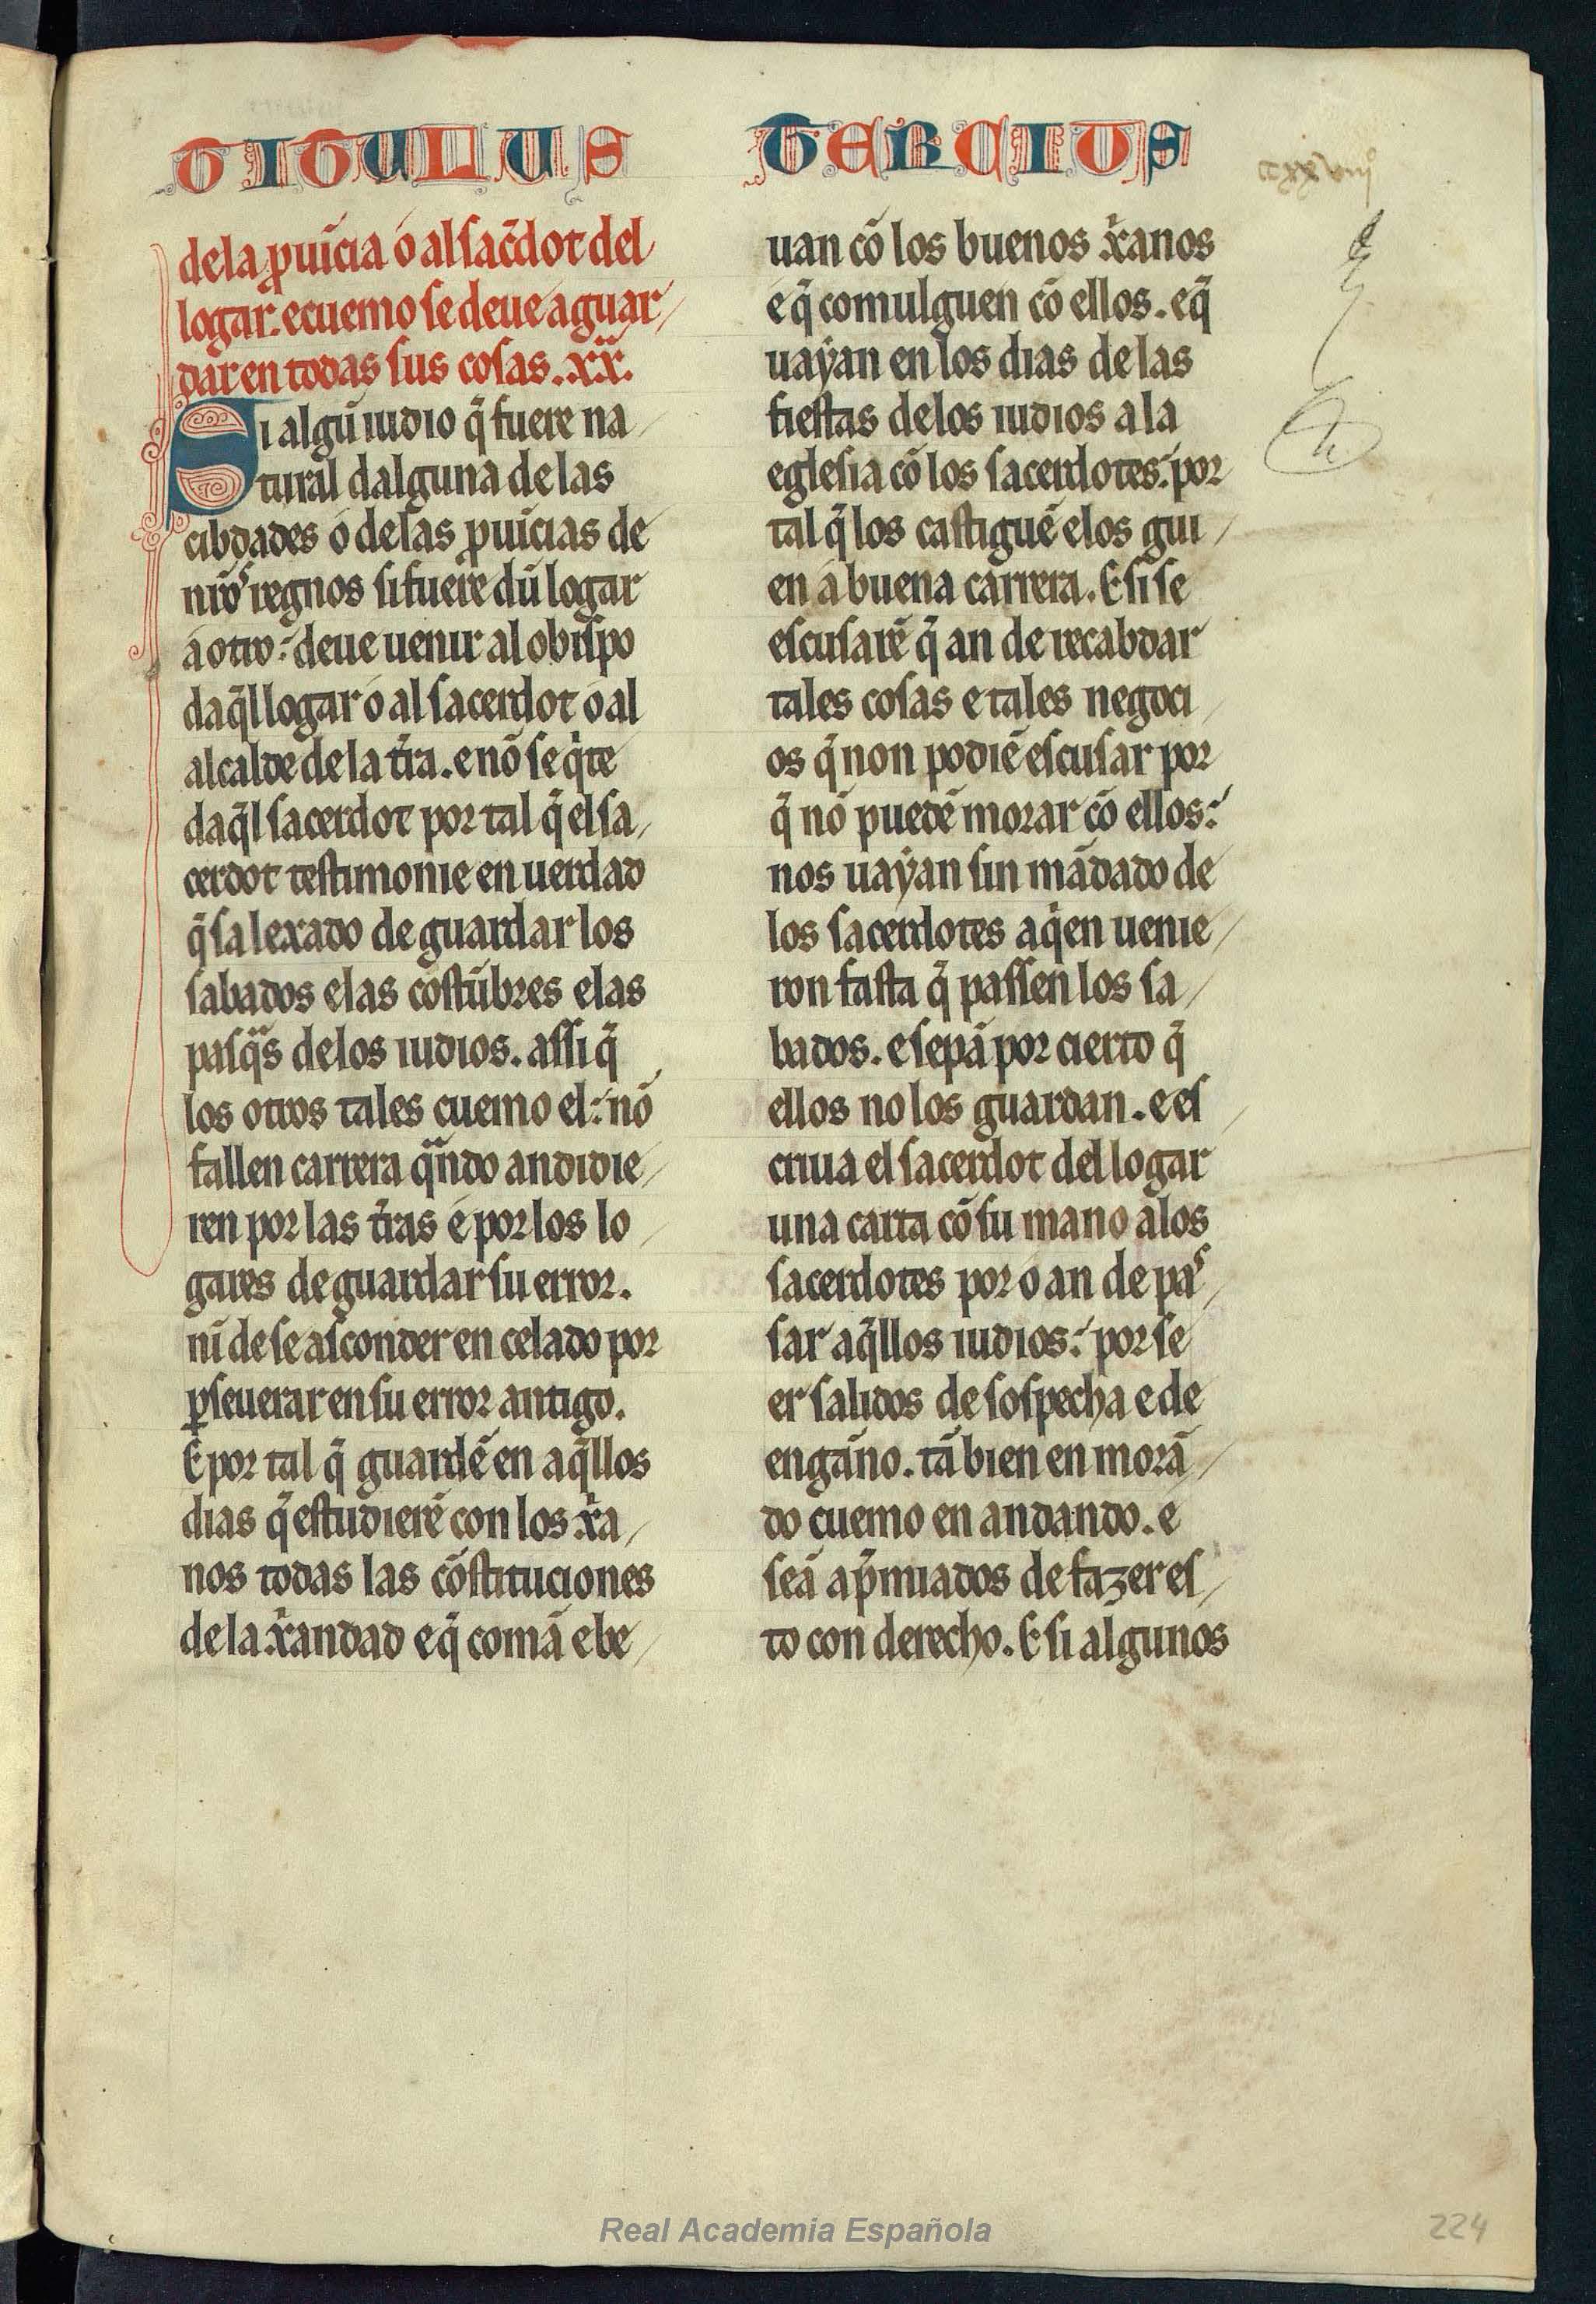 TITULUS TERCIUS
ccxxviijº
dela ꝓuĩcia o al sac̃dot del
logar. e cuemo se deue aguar
dar en todas sus cosas. xx.
Si algũ iudio q̃ fuere na
tural dalguna de las
cibdades o delas ꝓuĩcias de
nr̃os regnos si fuere dũ logar
a otro: deue uenir al obispo
daq̃l logar o al sacerdot o al
alcalde de la tr̃ra. e nõ se q̃te
daq̃l sacerdot por tal q̃ el sa
cerdot testimonie en uerdad
q̃ sa lexado de guardar los
sabados e las costũbres e las
pasq̃s delos iudios. assi q̃
los otros tales cuemo el: nõ
fallen carrera qñdo andidie
ren por las tr̃ras e por los lo
gares de guardar su error.
nĩ de se asconder en celado por
ꝑseuerar en su error antigo.
E por tal q̃ guardẽ en aq̃llos
dias q̃ estudierẽ con los xr̃a
nos todas las cõstituciones
de la xr̃andad e q̃ comã e be
uan cõ los buenos xr̃anos
e q̃ comulguen cõ ellos. e q̃
uaẏan en los dias de las
fiestas delos iudios a la
eglesia cõ los sacerdotes: por
tal q̃ los castiguẽ e los gui
en a buena carrera. E si se
escusarẽ q̃ an de recabdar
tales cosas e tales negoci
os q̃ non podiẽ escusar por
q̃ nõ puedẽ morar cõ ellos:
nos uaẏan sin mãdado de
los sacerdotes aq̃en uenie
ron fasta q̃ passen los sa
bados. e sepã por cierto q̃
ellos no los guardan. e es
criua el sacerdot del logar
una carta cõ su mano alos
sacerdotes por o an de pas
sar aq̃llos iudios: por se
er salidos de sospecha e de
engãno. tã bien en morã
do cuemo en andando. e
seã ap̃miados de fazer es
to con derecho. E si algunos
Real Academia Española
224